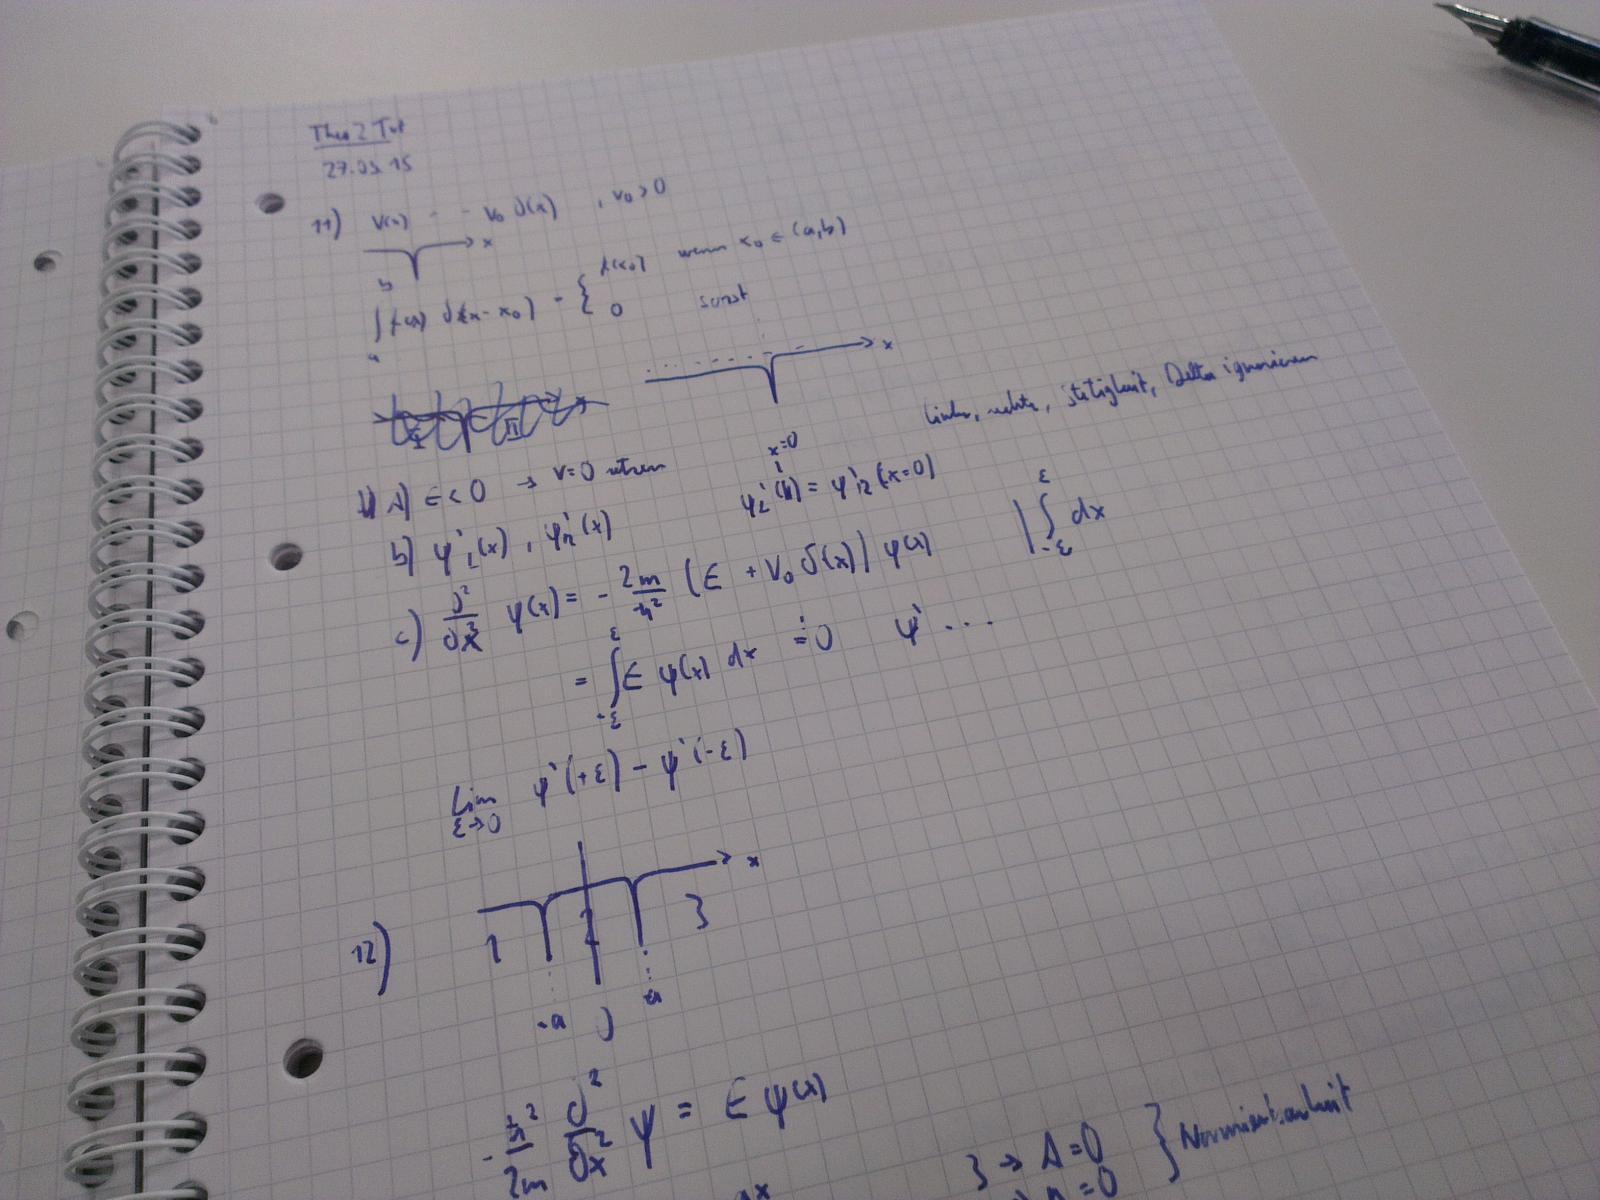 Theo 2 Tut
27.05.15
11) V(x) = - V₀ δ(x) , V₀ > 0
x
∫ₐᵇ f(x) δ(x-x₀) = { f(x₀) wenn x₀ ∈ (a,b)
0 sonst
x
I II
Links, rechts, Stetigkeit, Delta ignorieren
A) E < 0 → V=0 setzen
x=0
b) ψ'_L(x) , ψ'_R(x) ψ'_L(x) = ψ'_R(x=0)
c) ∂²/∂x² ψ(x) = - 2m/ħ² (E + V₀ δ(x)) ψ(x) | ∫_{-ε}^{ε} dx
= ∫_{-ε}^{ε} E ψ(x) dx = 0 ψ' ...
lim_{ε→0} ψ'(+ε) - ψ'(-ε)
12) 1 2 3 x
-a 0 a
- ħ²/2m ∂²/∂x² ψ = E ψ(x)
3 → A=0 } Normierbarkeit
=0